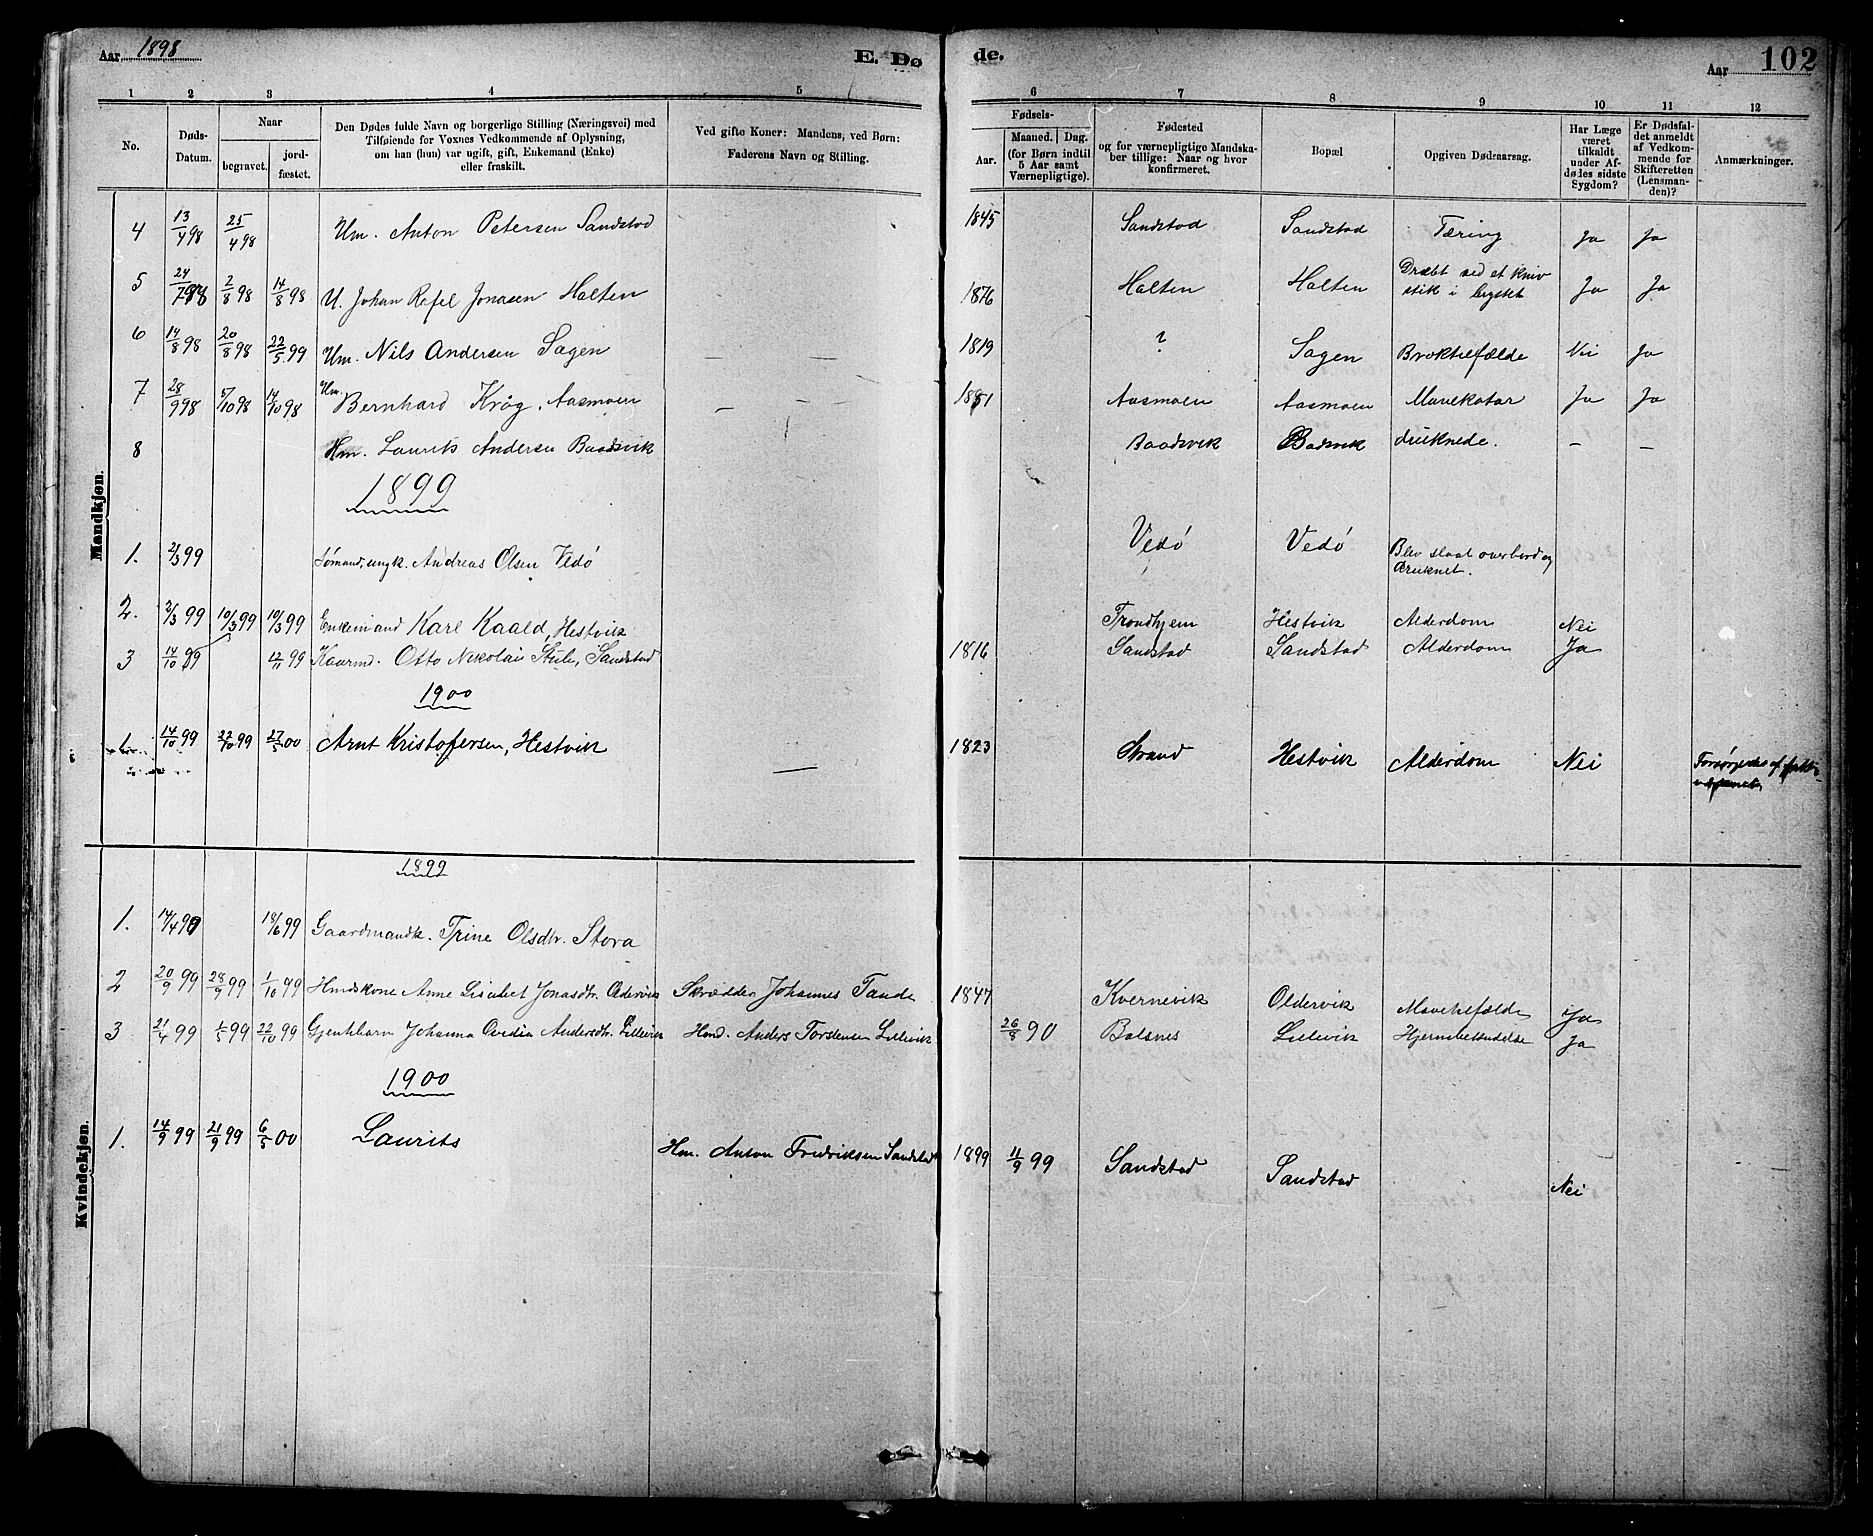 Aar 1898
E. Dø
de.
Aar
102
1 2 3 4 5 6 7 8 9 10 11 12
No.
Døds-
Datum.
Naar
begravet.
jord-
fæstet.
Den Dødes fulde Navn og borgerlige Stilling (Næringsvei) med
Tilføiende for Voxnes Vedkommende af Oplysning,
om han (hun) var ugift, gift, Enkemand (Enke)
eller fraskilt.
Ved gifte Koner: Mandens, ved Børn:
Faderens Navn og Stilling.
Fødsels-
Aar.
Maaned. Dag.
(for Børn indtil
5 Aar samt
Værnepligtige).
Fødested
og for værnepligtige Mandska-
ber tillige: Naar og hvor
konfirmeret.
Bopæl
Opgiven Dødsaarsag.
Har Læge
været
tilkaldt
under Af-
dødes sidste
Sygdom?
Er Dødsfal-
det anmeldt
af Vedkom-
mende for
Skifteretten
(Lensman-
den)?
Anmærkninger.
Mandkjøn.
4 13/4 98 25/4 98 Hm. Anton Petersen Sandstad 1845 Sandstad Sandstad Tæring Ja Ja
5 24/7 98 2/8 98 14/8 98 U. Johan Rafel Jonasen Halten 1876 Halten Halten Dræbt ved et kniv
stik i brystet Ja Ja
6 14/8 98 20/8 98 22/5 99 Hm. Nils Andersen Sagen — — 1819 ? Sagen Broktilfælde Nei Ja
7 28/9 98 5/10 98 14/10 98 Hm. Bernhard Krøg, Aasmoen — — 1851 Aasmoen Aasmoen Mavekatar Ja Ja
8 Hm. Laurits Andersen Baadsvik Baadsvik Badsvik druknede. — —
1899
1. 2/3 99 Sømand, ungk. Andreas Olsen Vedø Vedø Vedø Blev slaat overbord og
druknet.
2. 2/3 99 10/3 99 10/3 99 Enkemand Karl Kaald, Hestvik Trondhjem Hestvik Alderdom Nei
3 14/10 99 12/11 99 Kaarmd. Otto Nikolai Sandstad 1816 Sandstad Sandstad Alderdom Ja
1900
1. 14/10 99 22/10 99 27/5 00 Arnt Kristofersen, Hestvik — 1823 Strand Hestvik Alderdom Nei Forsørgedes af
1899
1. 14/4 99 18/6 99 Gaardmandk. Trine Olsdtr. Stora
2 20/9 99 28/9 99 1/10 99 Hmdskone Anne Lisebet Jonasdtr. Oldervik Skrædder Johannes Tande 1847 Kvernevik Oldervik Mavetilfælde Ja
3 21/4 99 1/5 99 22/10 99 Gjentebarn Johanna Ovedia Andersdtr. Lillevik Hmd. Anders Torstensen Lillevik 26/8 90 Balsnes Lillevik Hjernebetændelse Ja
1900
Kvindekjøn.
1. 14/9 99 21/9 99 6/5 00 Laurits Hm. Anton Fredriksen Sandstad 1899 11/9 99 Sandstad Sandstad Nei